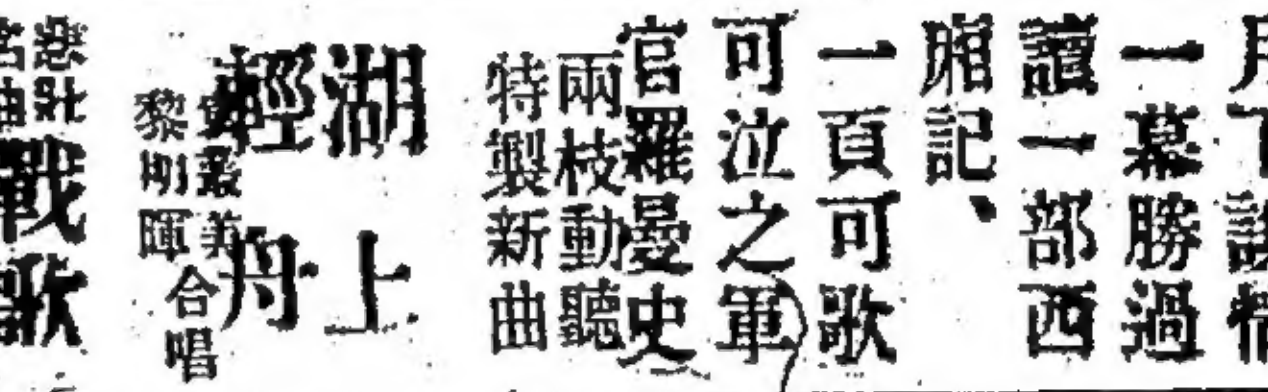 月下談情
一幕勝過
讀一部西
廂記、
一頁可歌
可泣之軍
官羅曼史
兩枝動聽
特製新曲
湖上
輕舟
袁叢美
黎明暉
合唱
悲壯
名曲
戰歌